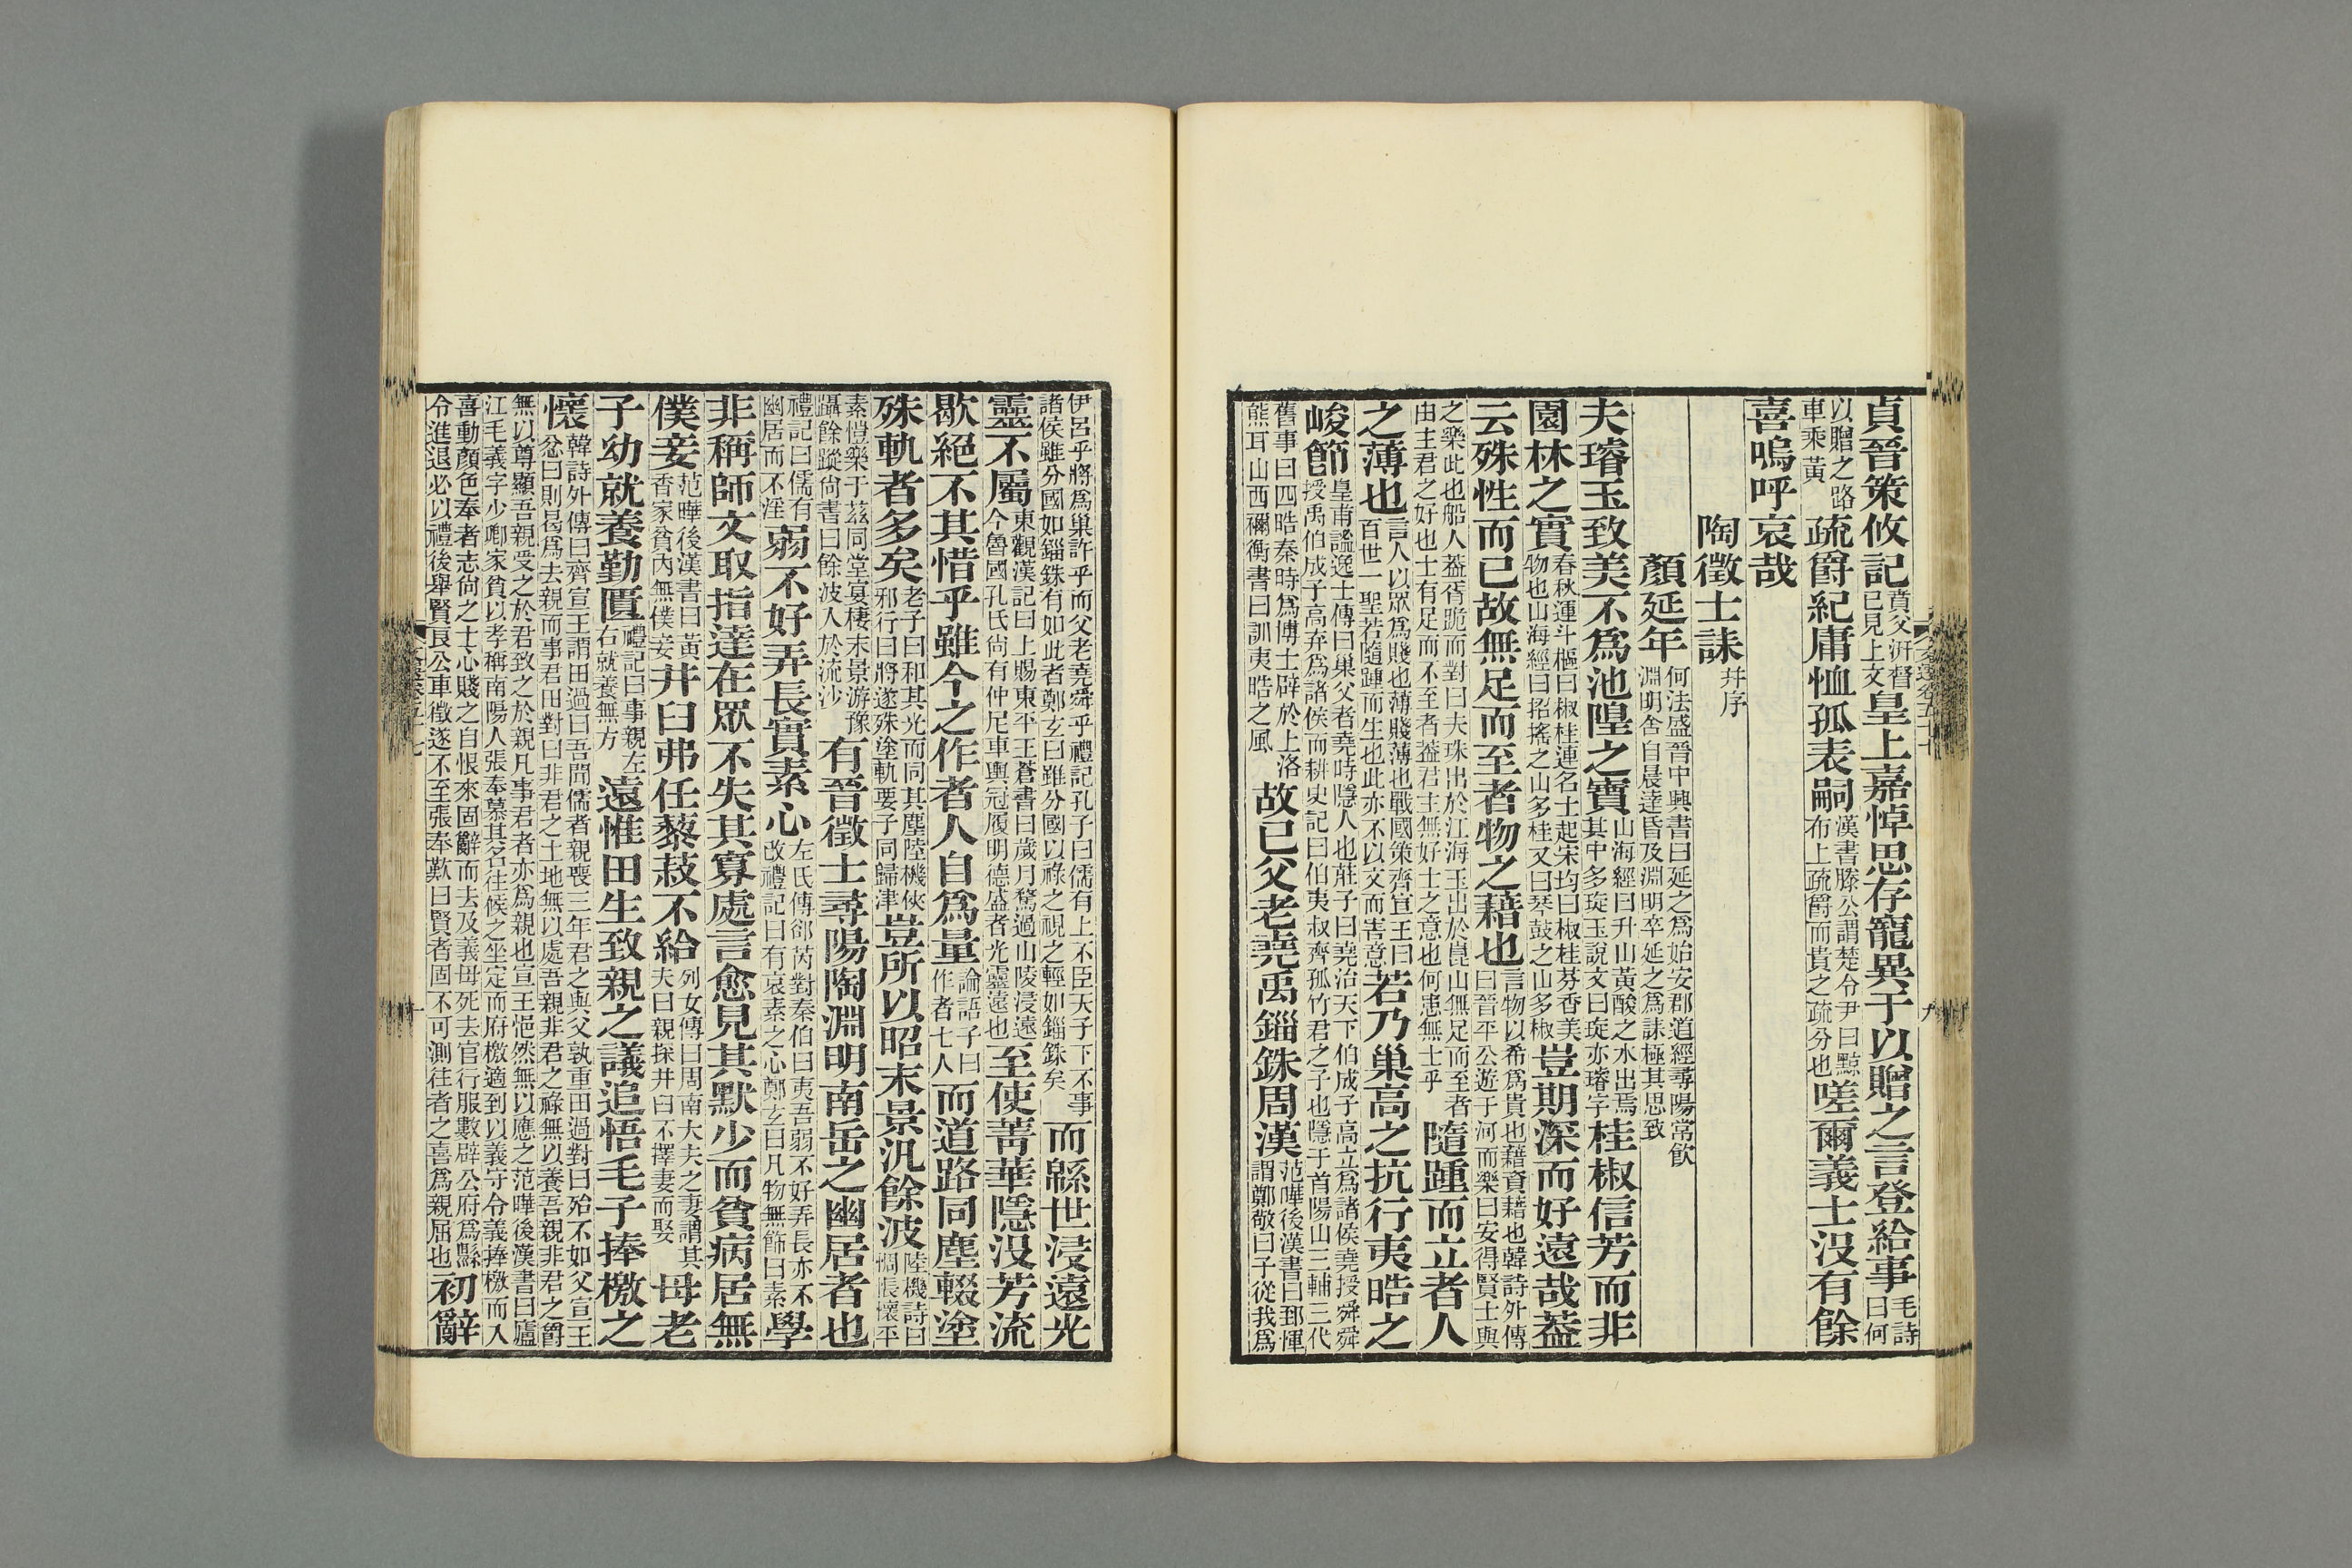 貞晉策攸記賁父汧督已見上文皇上嘉悼思存寵異于以贈之言登給事毛詩曰何
以贈之路車乘黃疏爵紀庸恤孤表嗣漢書滕公謂楚令尹曰黥布上疏爵而貴之疏分也嗟爾義士没有餘
喜嗚呼哀哉
陶徵士誄并序
顏延年何法盛晉中興書曰延之為始安郡道經尋陽常飲淵明舍自晨達昏及淵明卒延之為誄極其思致
夫璿玉致美不為池隍之寶山海經曰升山黃酸之水出焉其中多琁玉說文曰琁亦璿字桂椒信芳而非
園林之實春秋運斗樞曰椒桂連名士起宋均曰椒桂芬香美物也山海經曰招搖之山多桂又曰琴鼓之山多椒豈期深而好遠哉蓋
云殊性而已故無足而至者物之藉也言物以希為貴也藉資藉也韓詩外傳曰晉平公遊于河而樂曰安得賢士與
之樂此也船人蓋胥跪而對曰夫珠出於江海玉出於崑山無足而至者由主君之好也士有足而不至者蓋君主無好士之意也何患無士乎隨踵而立者人
之薄也言人以眾為賤也薄賤薄也戰國策齊宣王曰百世一聖若隨踵而生也此亦不以文而害意若乃巢高之抗行夷皓之
峻節皇甫謐逸士傳曰巢父者堯時隱人也莊子曰堯治天下伯成子高立為諸侯堯授舜舜授禹伯成子高弃為諸侯而耕史記曰伯夷叔齊孤竹君之子也隱于首陽山三輔三代
舊事曰四皓秦時為博士辟於上洛熊耳山西禰衡書曰訓夷皓之風故已父老堯禹錙銖周漢范曄後漢書曰郅惲謂鄭敬曰子從我為
文選卷五十七
九
伊呂乎將為巢許乎而父老堯舜乎禮記孔子曰儒有上不臣天子下不事諸侯雖分國如錙銖有如此者鄭玄曰雖分國以祿之視之輕如錙銖矣而緜世浸遠光
靈不屬東觀漢記曰上賜東平王蒼書曰歲月騖過山陵浸遠今魯國孔氏尚有仲尼車輿冠履明德盛者光靈遠也至使菁華隱没芳流
歇絕不其惜乎雖今之作者人自為量論語子曰作者七人而道路同塵輟塗
殊軌者多矣老子曰和其光而同其塵陸機俠邪行曰將遂殊塗軌要子同歸津豈所以昭末景汎餘波陸機詩曰惆悵懷平
素愷樂于茲同堂宴棲末景游豫躡餘蹤尚書曰餘波入於流沙有晉徵士尋陽陶淵明南岳之幽居者也
禮記曰儒有幽居而不淫弱不好弄長實素心左氏傳郤芮對秦伯曰夷吾弱不好弄長亦不改禮記曰有哀素之心鄭玄曰凡物無飾曰素學
非稱師文取指達在眾不失其寡處言愈見其默少而貧病居無
僕妾范曄後漢書曰黃香家貧內無僕妾井臼弗任藜菽不給列女傳曰周南大夫之妻謂其夫曰親探井臼不擇妻而娶母老
子幼就養勤匱禮記曰事親左右就養無方遠惟田生致親之議追悟毛子捧檄之
懷韓詩外傳曰齊宣王謂田過曰吾聞儒者親喪三年君之與父孰重田過對曰殆不如父宣王忿曰則曷為去親而事君田對曰非君之土地無以處吾親非君之祿無以養吾親非君之爵
無以尊顯吾親受之於君致之於親凡事君者亦為親也宣王悒然無以應之范曄後漢書曰廬江毛義字少卿家貧以孝稱南陽人張奉慕其名往候之坐定而府檄適到以義守令義捧檄而入
喜動顏色奉者志尚之士心賤之自恨來固辭而去及義母死去官行服數辟公府為縣令進退必以禮後舉賢良公車徵遂不至張奉歎曰賢者固不可測往者之喜為親屈也初辭